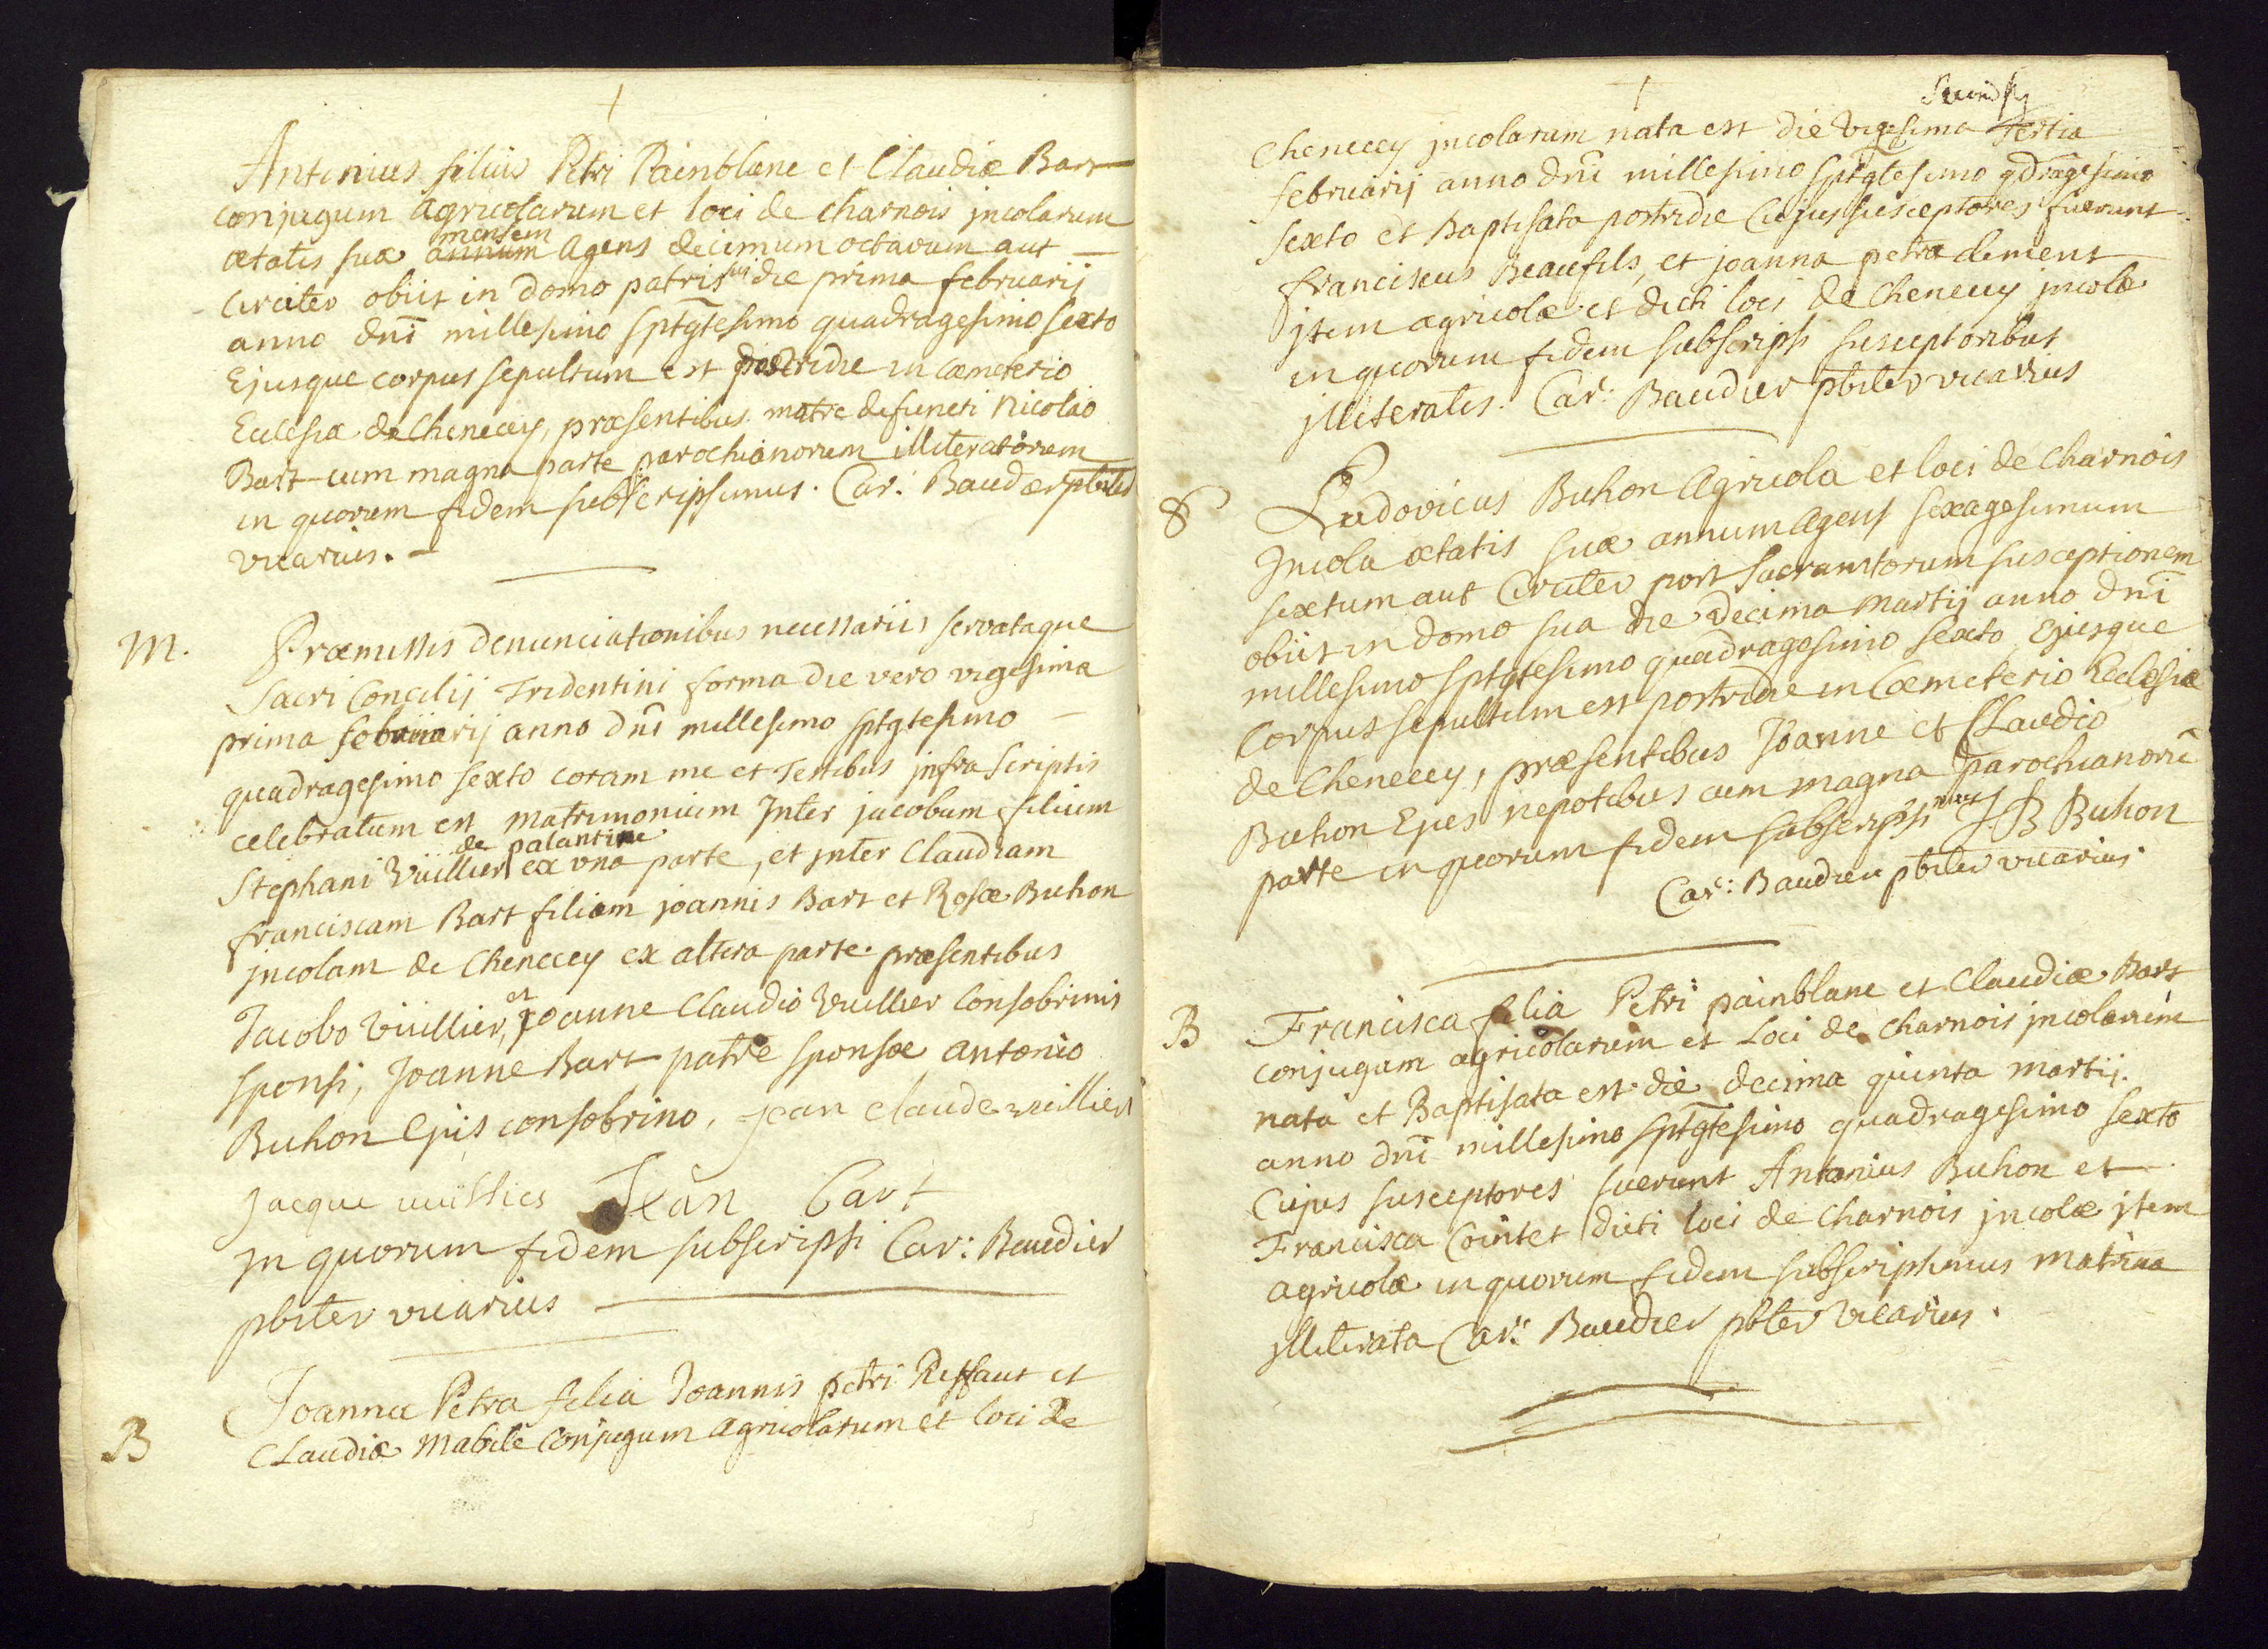 Antonius filius Petri Painblanc et Claudiæ Bart
conjugum agricolarum et loci de charnois jncolarum
mensem
ætatis suæ annum agens decimum octavum aut
circiter obiit in domo patris sui die prima februarij
anno dni millesimo sptgtesimo quadragesimo sexto
Ejusque corpus sepultum est postridie in cæmeterio
Eclesiæ de Chenecey, præsentibus matre defuncti Nicolao
Bart cum magna parte parochianorum illiteratorum
in quorum fidem subscripsimus. Car: Baudier pbiter
vicarius.
M. Præmissis denunciationibus necessariis servataque
Sacri Concilij Tridentini forma die vero vigesima
prima februarij anno dni millesimo sptgtesimo
quadragesimo sexto coram me et Testibus jnfra scriptis
celebratum est matrimonium Jnter jacobum filium
de palantine
Stephani Vuillier ex una parte, et jnter Claudiam
franciscam Bart filiam joannis Bart et Rosæ Buhon
jncolam de Chenecey ex altera parte. præsentibus
et
Jacobo Vuillier, joanne Claudio Vuillier Consobrinis
sponsi, Joanne Bart patre sponsæ antonio
Buhon Ejus consobrino, jean claude vuillier
jacque vuillier Jean Bart
jn quorum fidem subscripsi Car: Baudier
pbiter vicarius
Joanna Petra filia Joannis petri Reffaut et
B Claudiæ Mabile conjugum agricolarum et loci de
Secunda
Chenecey jncolarum nata est die vigesima Tertia
februarij anno dni millesimo sptgtesimo qdragesimo
sexto et Baptisata postridie Cujus susceptores fuerunt
franciscus Beaufils, et joanna petra clement
jtem agricolæ et dicti loci de Chenecey jncolæ
in quorum fidem subscripsi susceptoribus
jlliteratis. Car: Baudier pbiter vicarius
S Ludovicus Buhon Agricola et loci de Charnois
Jncola ætatis suæ annum agens sexagesimum
sextum aut Circiter post sacramtorum susceptionem
obiit in domo sua die decima Martij anno dni
millesimo sptgtesimo quadragesimo sexto, Ejusque
Corpus sepultum est postridie in Cæmeterio Eclesiæ
de Chenecey, præsentibus Joanne et Claudio
Buhon Ejus nepotibus cum magna parochianorũ
parte in quorum fidem subscripsimus JB Buhon
Car: Baudier pbiter vicarius
B Francisca filia Petri painblanc et Claudiæ Bart
conjugum agricolarum et Loci de Charnois jncolarum
nata et Baptisata est die decima quinta martij
anno dni millesimo sptgtesimo quadragesimo sexto
Cujus susceptores fuerunt Antonius Buhon et
Francisca Cointet dicti loci de Charnois jncolæ jtem
agricolæ in quorum fidem subscripsimus matrina
jlliterata Car: Baudier pbter vicarius.